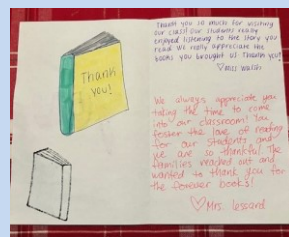 Thank you!
Thank you so much for visiting
our class! Our students really
enjoyed listening to the story you
read. We really appreciate the
books you brought us. Thank you!
♡ Miss Walsh
We always appreciate you
taking the time to come
into our classroom! You
foster the love of reading
for our students and
we are so thankful. The
families reached out and
wanted to thank you for
the forever books!
♡ Mrs. Lessard